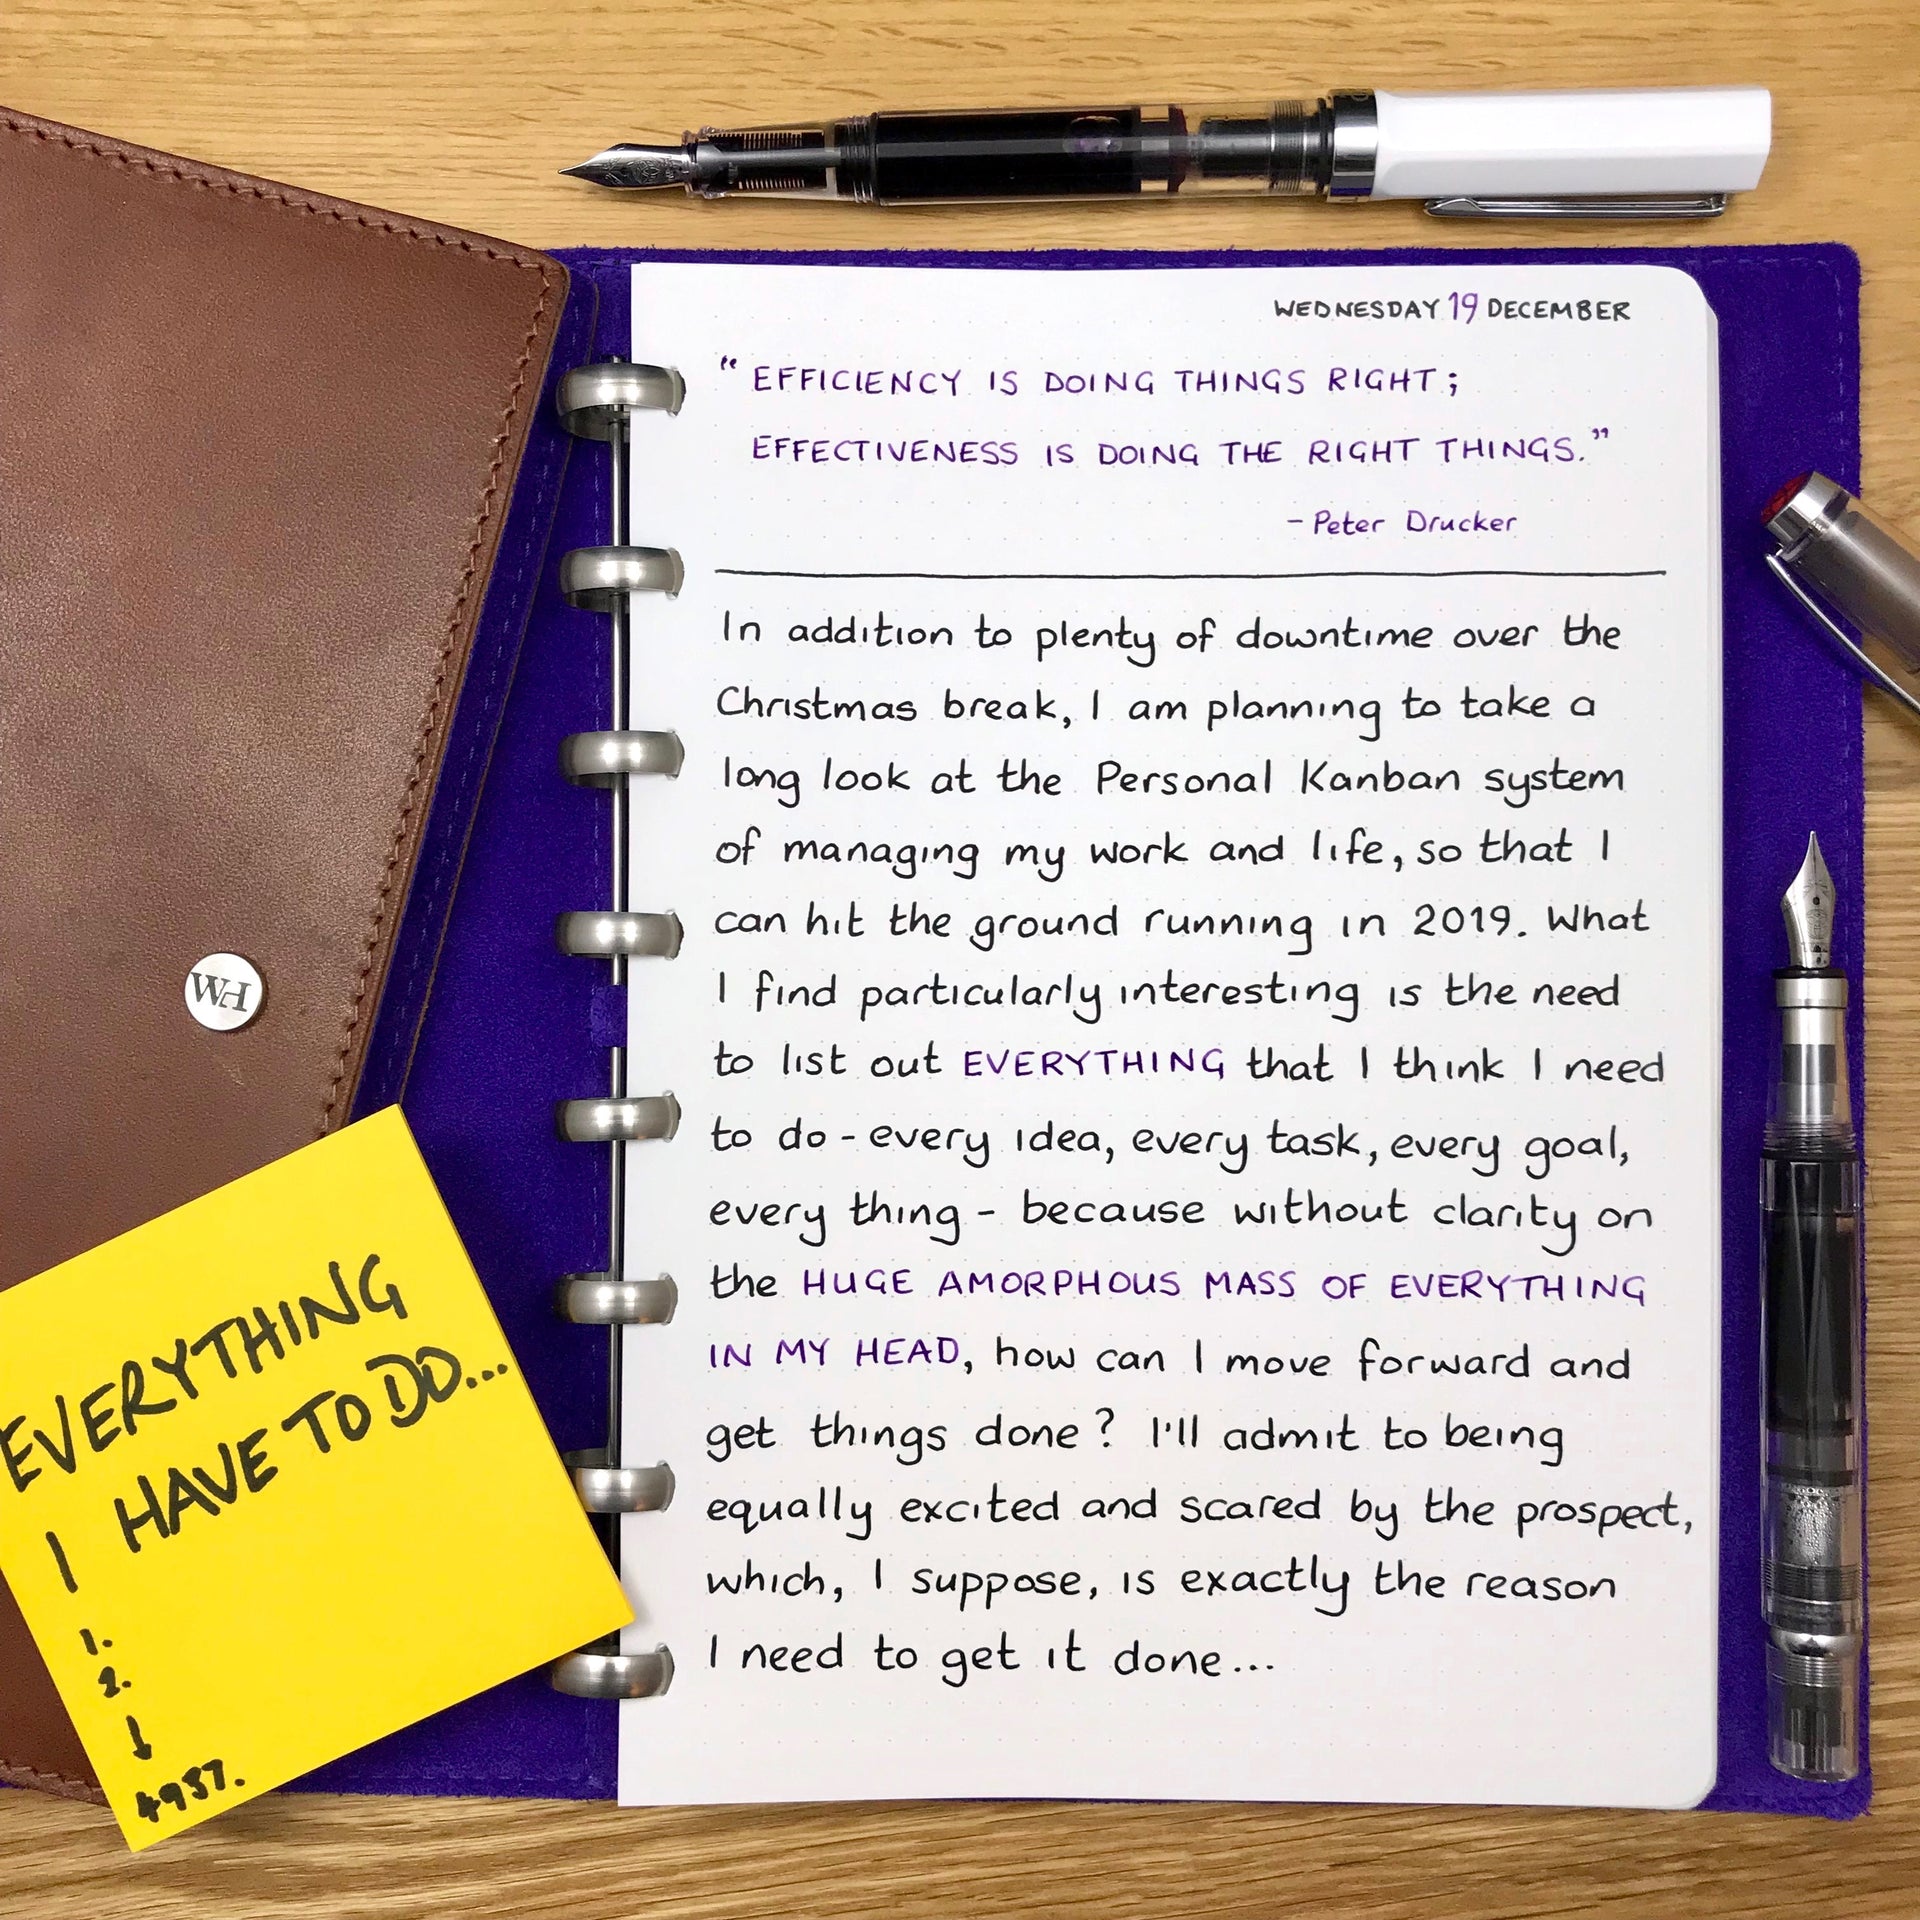 WEDNESDAY 19 DECEMBER
“ EFFICIENCY IS DOING THINGS RIGHT;
EFFECTIVENESS IS DOING THE RIGHT THINGS.”
- Peter Drucker
In addition to plenty of downtime over the
Christmas break, I am planning to take a
long look at the Personal Kanban system
of managing my work and life, so that I
can hit the ground running in 2019. What
I find particularly interesting is the need
to list out EVERYTHING that I think I need
to do - every idea, every task, every goal,
every thing - because without clarity on
the HUGE AMORPHOUS MASS OF EVERYTHING
IN MY HEAD, how can I move forward and
get things done? I'll admit to being
equally excited and scared by the prospect,
which, I suppose, is exactly the reason
I need to get it done...
WH
EVERYTHING
I HAVE TO DO...
1.
2.
↓
4937.